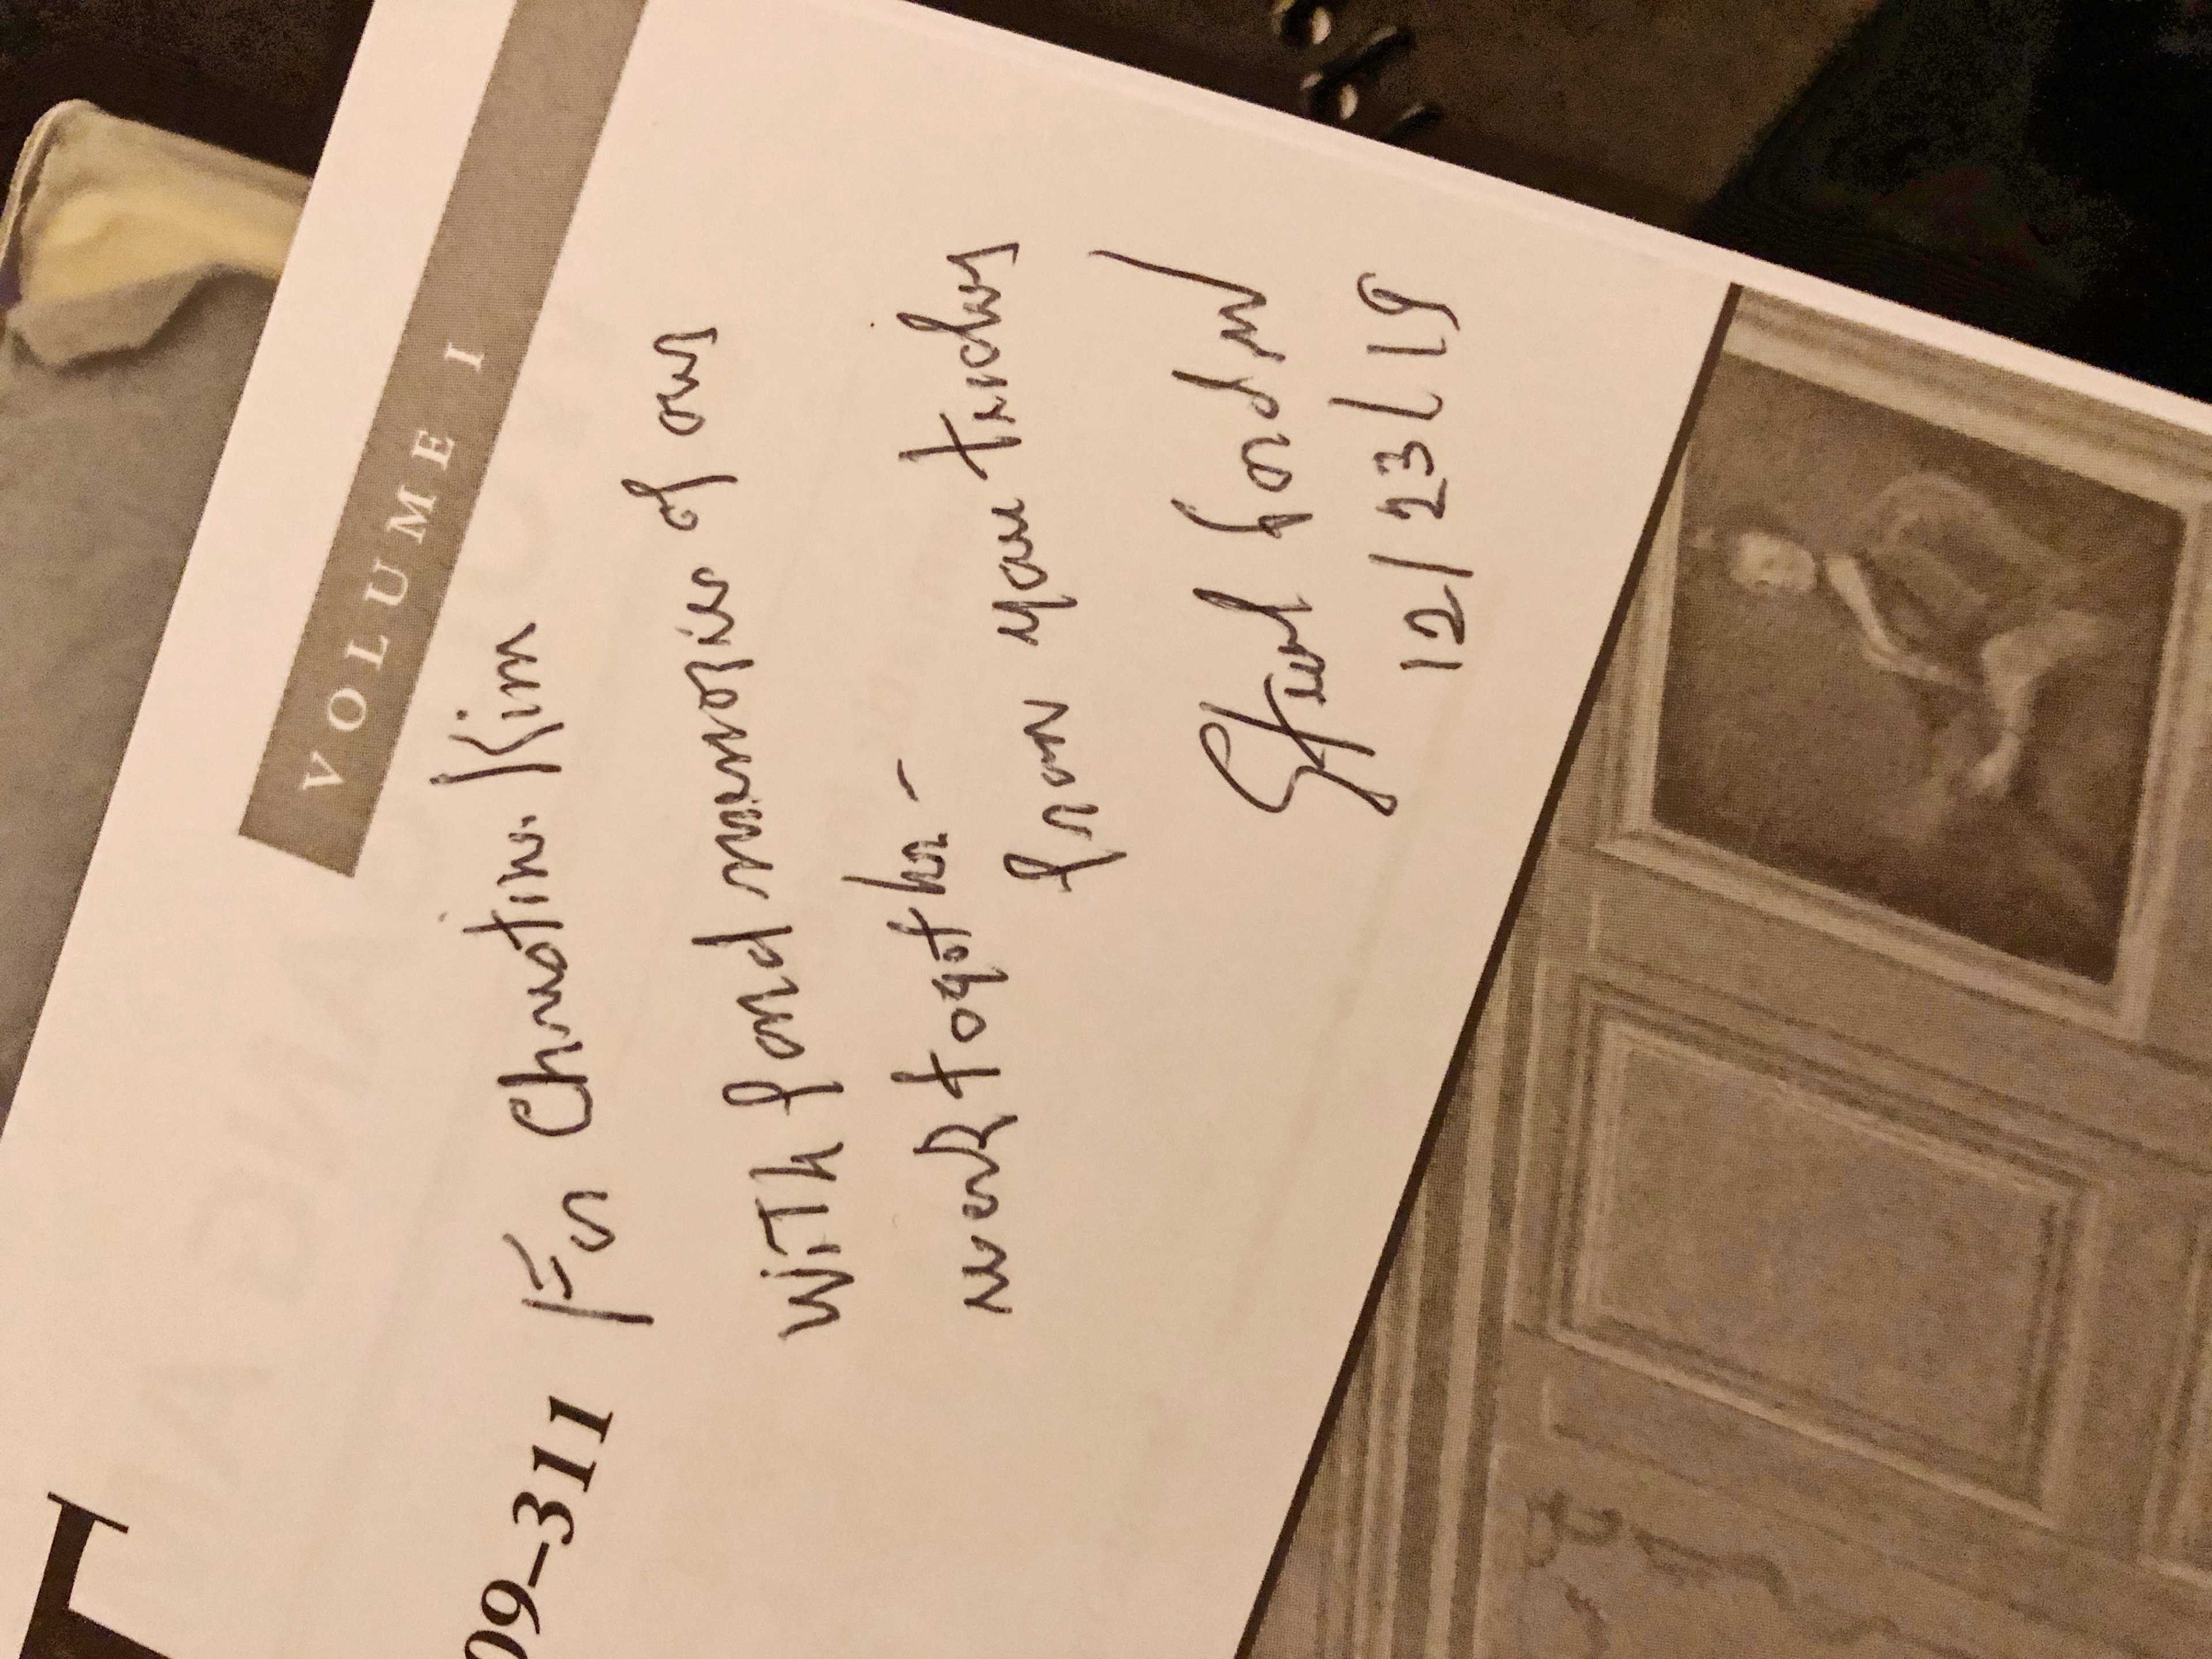 VOLUME I
09–311
For Christine Kim
With fond memories of our
work together –
from your teacher
12/23/19